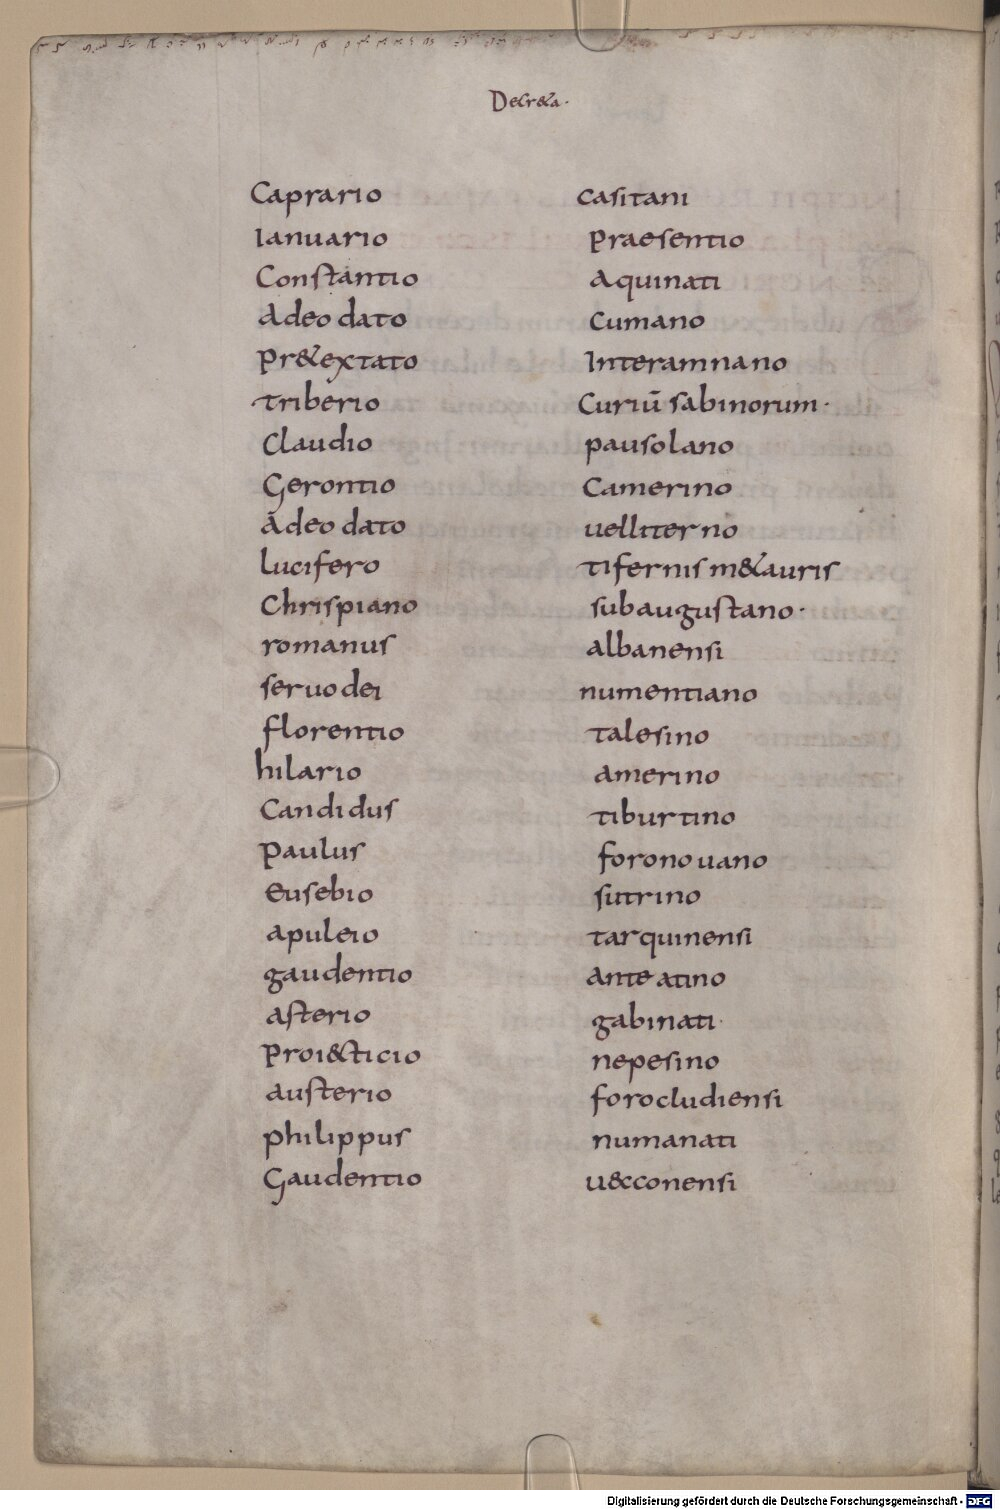 Decr&a·
Caprario casitani
Ianuario praesentio
Constantio aquinati
Adeo dato cumano
pr&extato Interamnano
triberio Curiū sabinorum·
Claudio pausolano
Gerontio Camerino
Adeo dato uelliterno
lucifero tifernis m&auris
Chrispiano subaugustano·
romanus albanensi
seruo dei numentiano
florentio talesino
hilario amerino
Candidus tiburtino
Paulus foronouano
eusebio sutrino
apuleio tarquinensi
gaudentio ante atino
asterio gabinati·
Proi&ticio nepesino
austerio forocludiensi
philippus numanati
Gaudentio u&cconensi
Digitalisierung gefördert durch die Deutsche Forschungsgemeinschaft - DFG